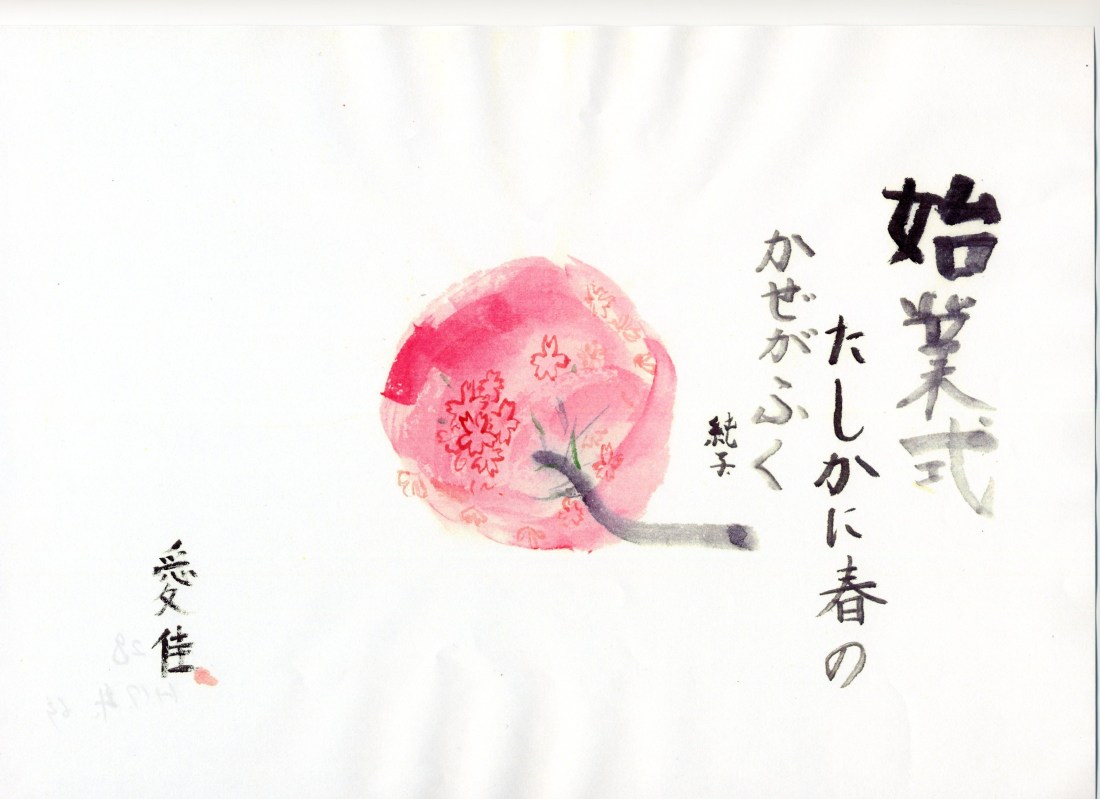 始業式
たしかに春の
かぜがふく
純子
愛佳